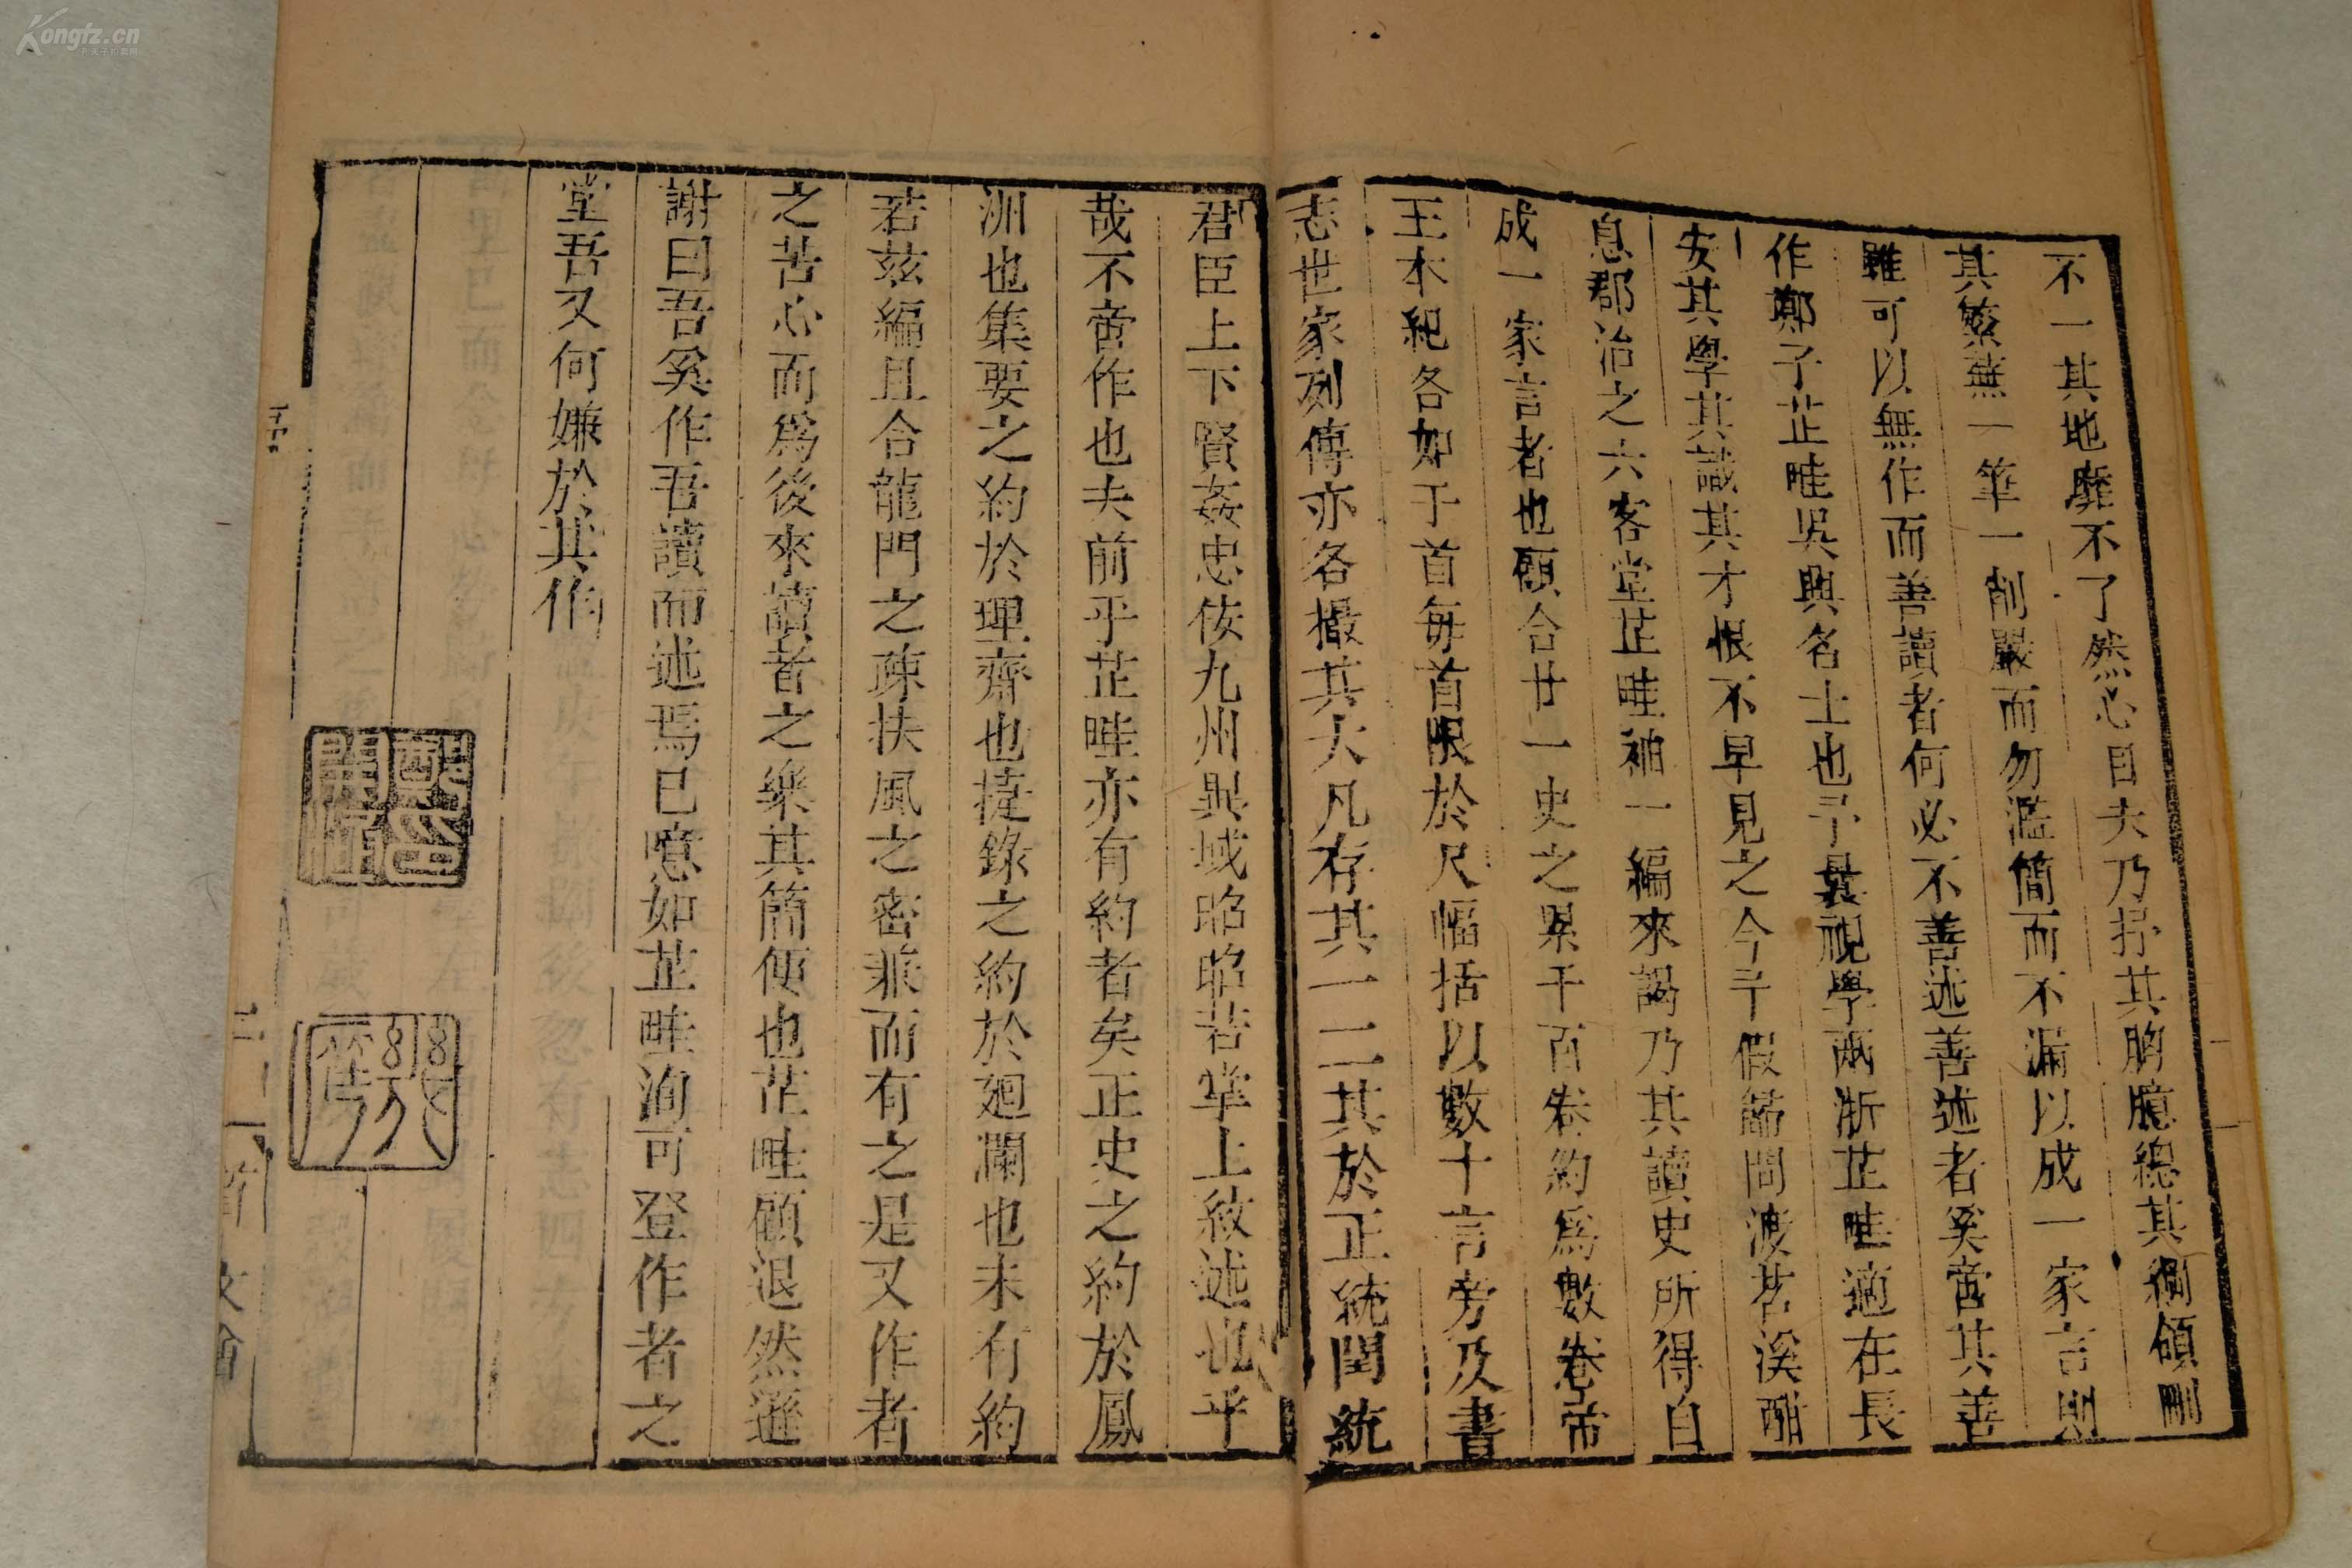 不一其地靡不了然心目夫乃抒其胸臆總其綱領刪
其繁蕪一筆一削嚴而勿濫簡而不漏以成一家言則
雖可以無作而善讀者何必不善述善述者奚啻其善
作鄭子芷畦吳興名士也予曩視學兩浙芷畦適在長
安其學其識其才恨不早見之今予假歸問渡苕溪酣
息郡治之六客堂芷畦袖一編來謁乃其讀史所得自
成一家言者也願合廿一史之累千百卷約爲數卷帝
王本紀各如干首每首限於尺幅括以數十言旁及書
志世家列傳亦各撮其大凡存其一二其於正統閏統
君臣上下賢姦忠佞九州異域昭昭若掌上紋述也乎
哉不啻作也夫前乎芷畦亦有約者矣正史之約於鳳
洲也集要之約於理齋也捷錄之約於廻瀾也未有約
若茲編且合龍門之疎扶風之密兼而有之是又作者
之苦心而爲後來讀者之樂其簡便也芷畦頎退然遜
謝曰吾奚作吾讀而述焉已噫如芷畦洵可登作者之
堂吾又何嫌於其作
Kongfz.cn